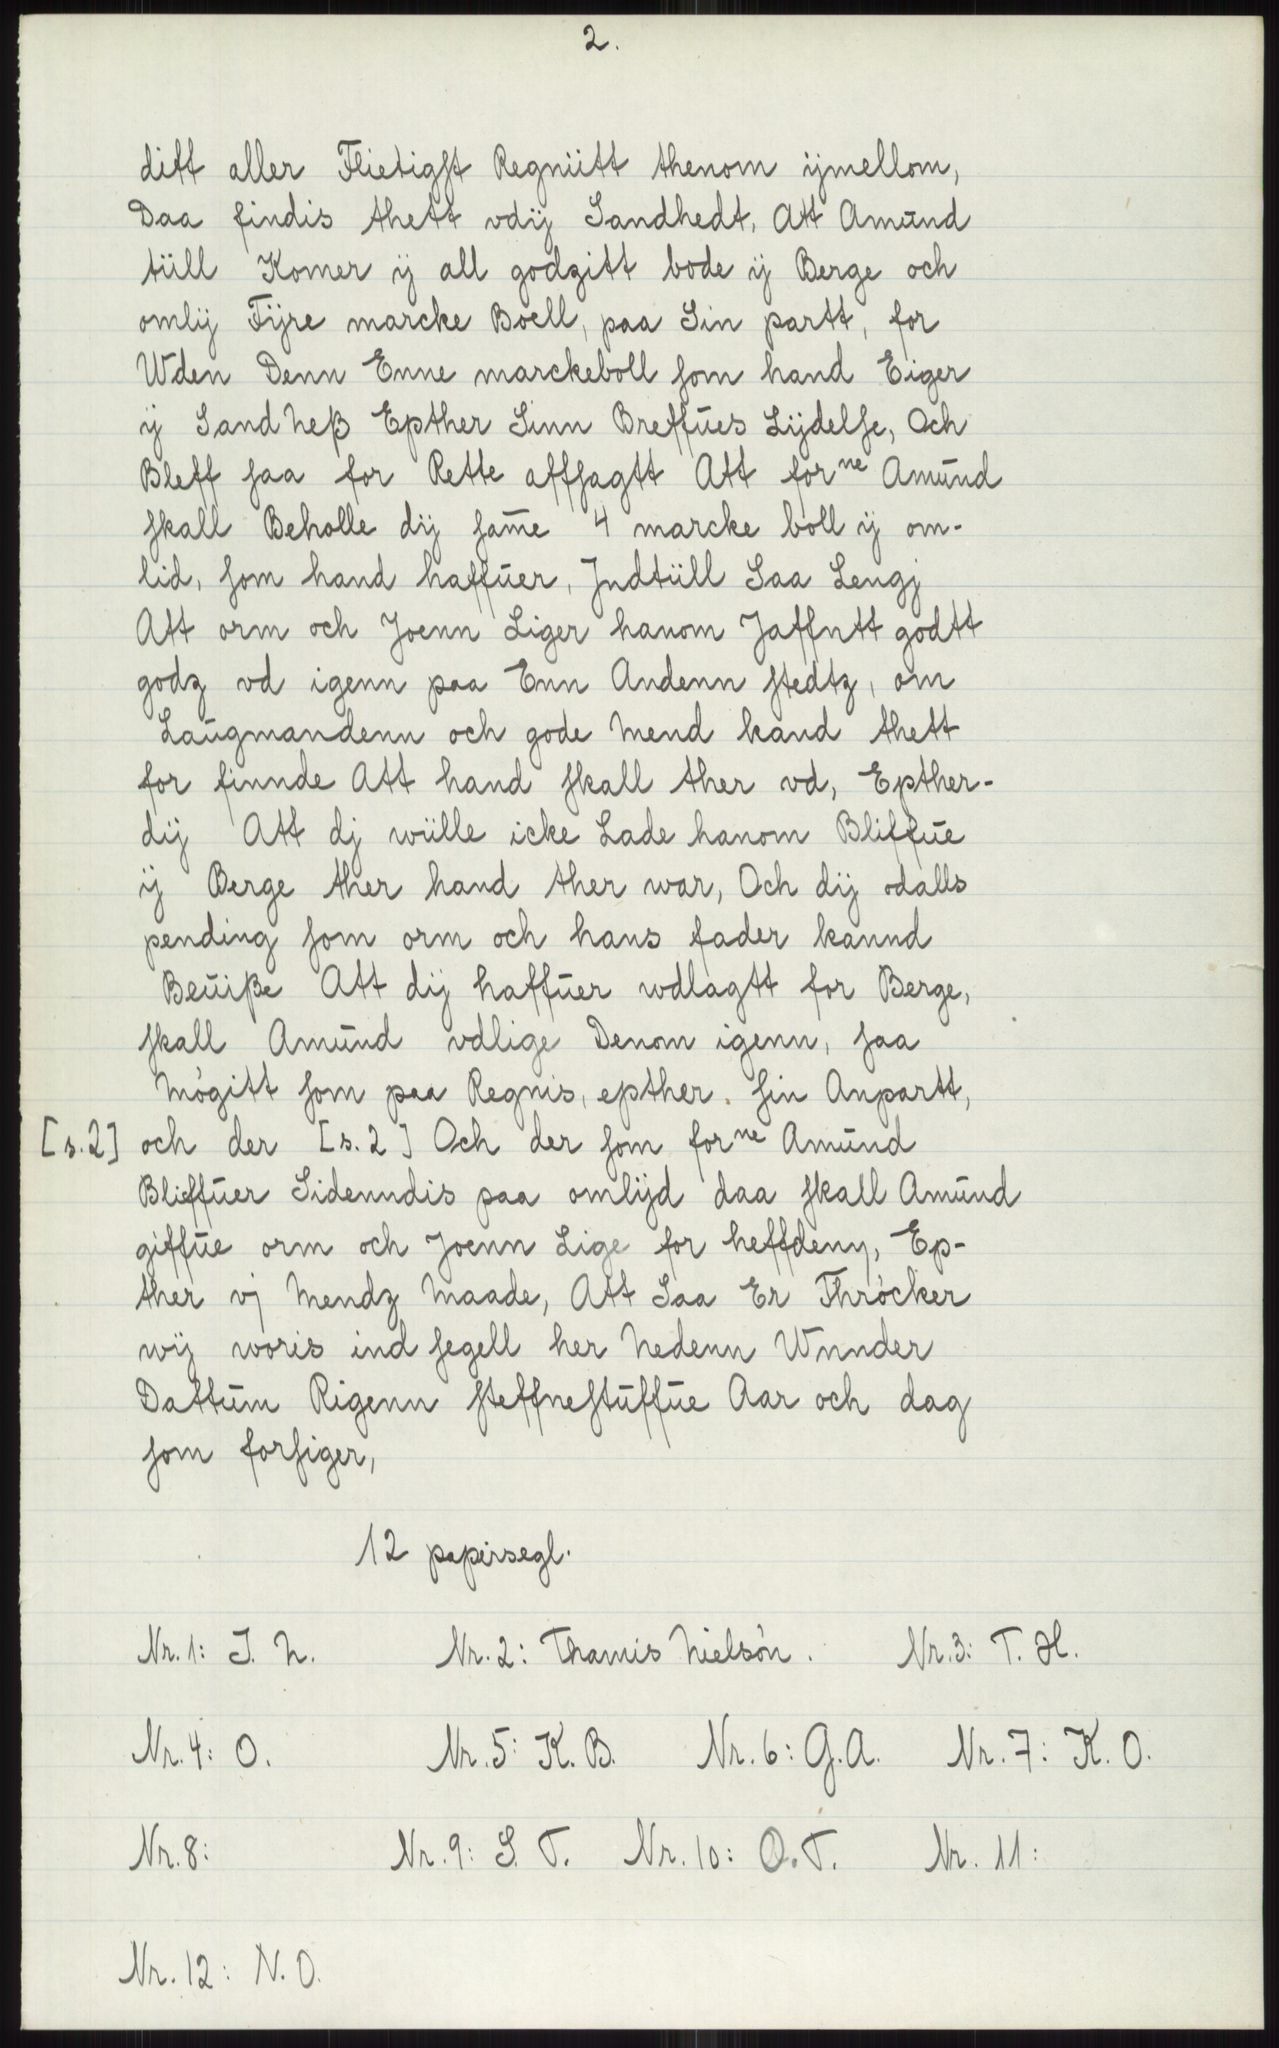 2.
diſt aller Flietigſt Regnütt thenom ijmellom,
Daa findis thett vdij Sandhedt, Att Amŭnd
tüll Komer ij all godzitt bode ij Berge och
omlij Fijre marcke Boell, paa Sin partt, for
Wden Denn Enne marckeboll ſom hand Eiger
ij Sandneß Epther Sinn Breffŭes Lijdelſe, Och
Bleff ſaa for Rette affſagtt Att forne Amŭnd
ſkall Beholle dij ſam̄e 4 marcke boll ij om-
lid, ſom hand haffŭer, Jndtüll Saa Lengj
Att orm och Joenn Liger hanom Jaffntt godtt
godz vd igenn paa Enn Andenn ſtedtz, om
Laŭgmandenn och gode Mend kand thett
for finnde Att hand ſkall ther vd, Epther-
dij Att dj wülle icke Lade hanom Bliffŭe
ij Berge ther hand ther war, Och dij odalls
pending ſom orm och hans fader kannd
Beŭiße Att dij haffŭer wdlagtt for Berge,
ſkall Amŭnd vdlige Denom igenn, ſaa
Mögitt ſom paa Regnis, epther. ſin Anpartt,
[s.2] och der [s.2] Och der ſom forne Amŭnd
Blieffŭer Sidenndis paa omlijd daa ſkall Amŭnd
giffŭe orm och Joenn Lige for heffdenn, Ep-
ther vj Mendz Maade, Att Saa Er Thröcker
wij woris ind ſegell her Nedenn Wnnder
Dattŭm Rigenn ſteffneſtŭffŭe Aar och dag
ſom forſiger,
12 papirsegl.
Nr. 1: J. N. Nr. 2: Thamis Nielsön. Nr. 3: T. H.
Nr. 4: O. Nr. 5: K. B. Nr. 6: G. A. Nr. 7: K. O.
Nr. 8: Nr. 9: S. T. Nr. 10: O. T. Nr. 11:
Nr. 12: N. O.